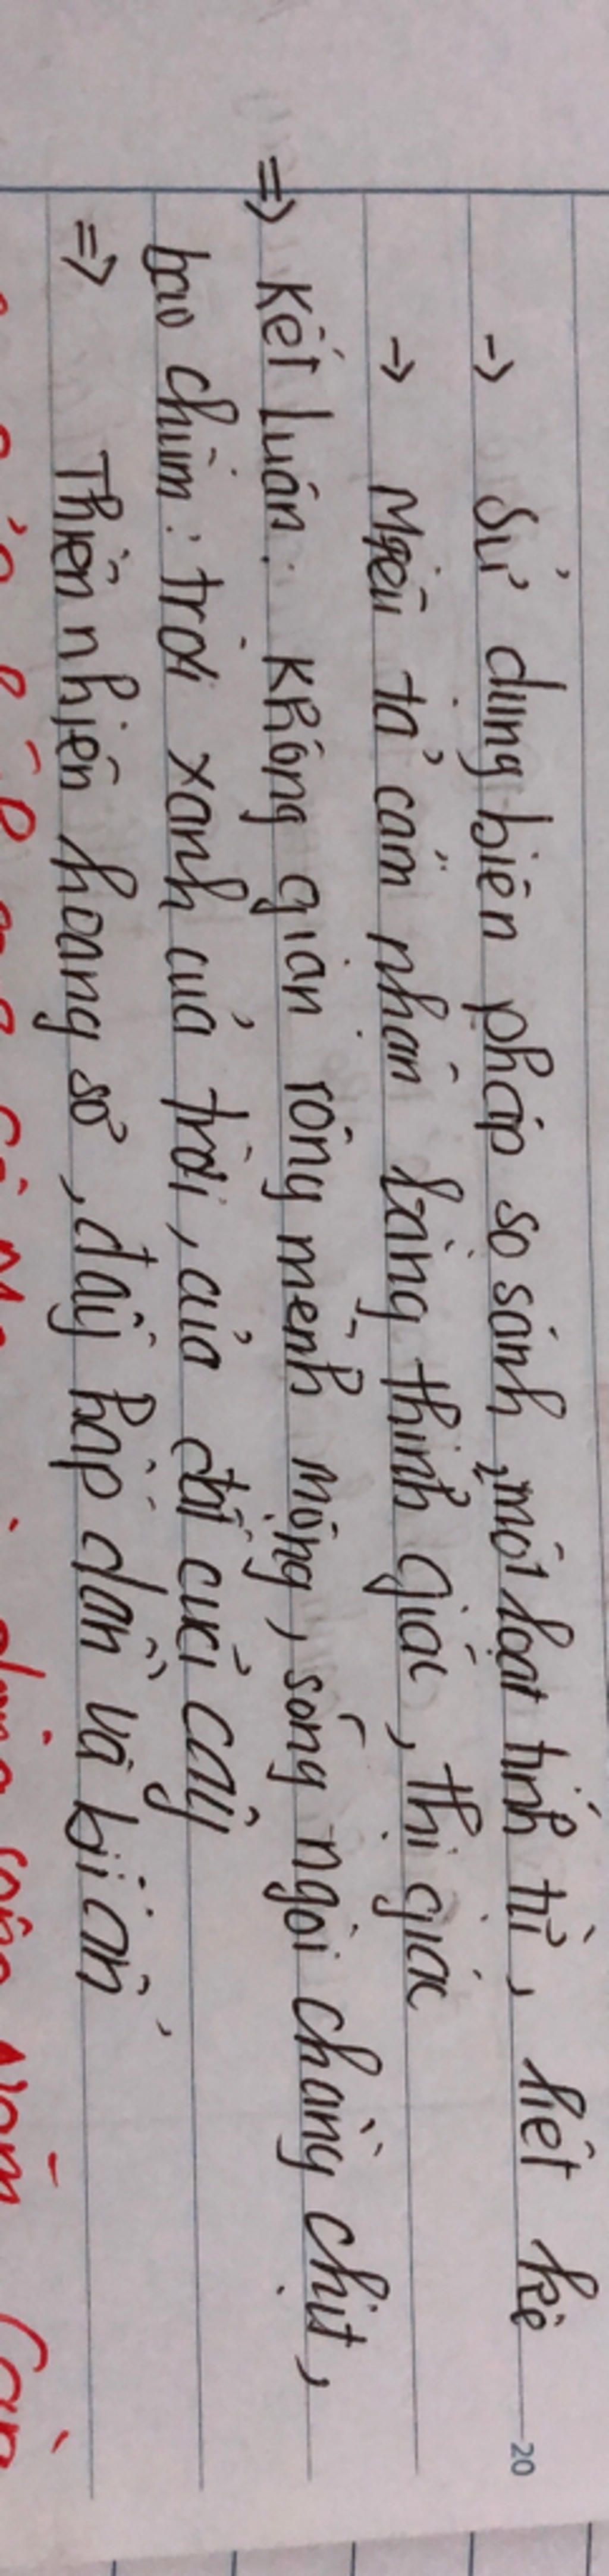 -> Sử dụng biện pháp so sánh, một loạt tính từ, liệt kê
20
-> Miêu tả cảm nhận bằng thính giác, thị giác
=> Kết luận: Không gian rộng mênh mông, sông ngòi chằng chịt,
bao chùm: trời xanh của trời, của đất của cây
=> Thiên nhiên hoang sơ, đầy hấp dẫn và bí ẩn